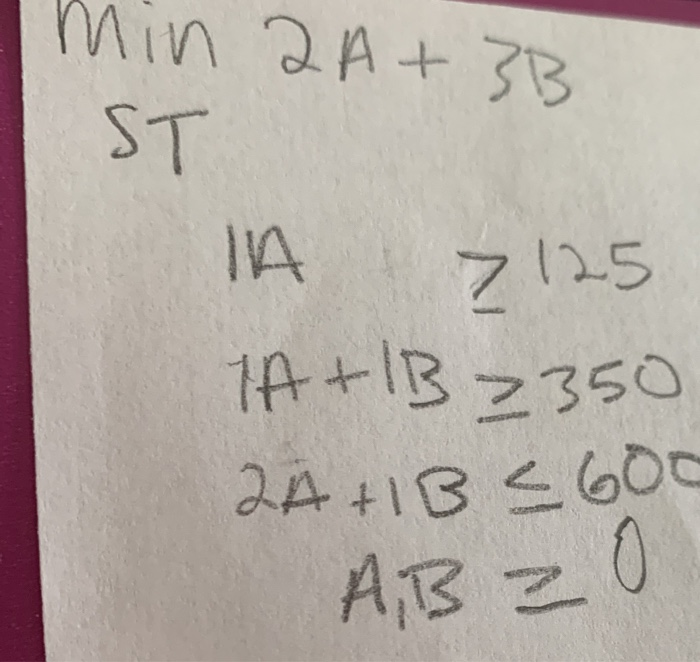 Min 2A + 3B
ST
1A ≥ 125
1A + 1B ≥ 350
2A + 1B ≤ 600
A, B ≥ 0